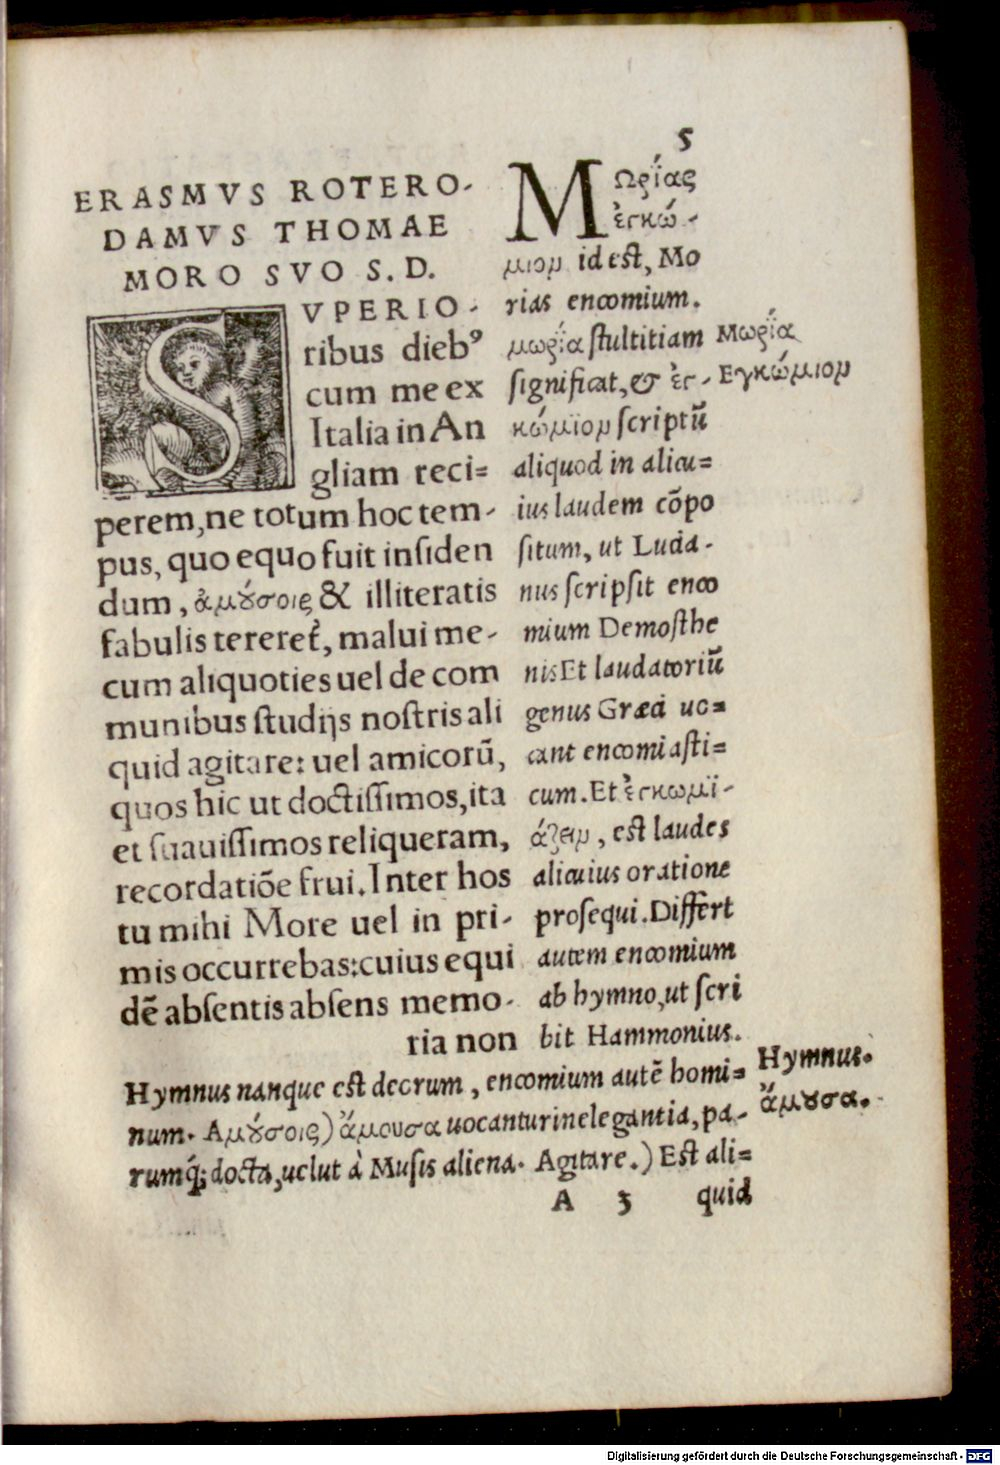 5
ERASMVS ROTERO-
DAMVS THOMAE
MORO SVO S. D.
SVPERIO-
ribus dieb⁹
cum me ex
Italia in An
gliam reci=
perem, ne totum hoc tem-
pus, quo equo fuit insiden
dum, ἀμούσοις & illiteratis
fabulis tereret᷑, malui me-
cum aliquoties uel de com
munibus studijs nostris ali
quid agitare: uel amicorū,
quos hic ut doctissimos, ita
et suauissimos reliqueram,
recordatiōe frui. Inter hos
tu mihi More uel in pri-
mis occurrebas: cuius equi
dē absentis absens memo-
ria non
ΜΩρίας
ἐγκώ-
μιον id est, Mo
rias encomium.
μωρία stultitiam
significat, & ἐγ-
κώμϊον scriptū
aliquod in alicu=
ius laudem cōpo
situm, ut Lucia-
nus scripsit enco
mium Demosthe
nis Et laudatoriū
genus Græci uo=
cant encomiasti=
cum. Et ἐγκωμϊ-
άζειν, est laudes
alicuius oratione
prosequi. Differt
autem encomium
ab hymno, ut scri
bit Hammonius.
Μωρία
Εγκώμιον
Hymnus nanque est deorum, encomium autē homi=
num. Αμούσοις) ἄμουσα uocantur inelegantia, pa-
rumq́; docta, uelut à Musis aliena. Agitare.) Est ali=
Hymnus.
ἄμουσα.
A 3 quid
Digitalisierung gefördert durch die Deutsche Forschungsgemeinschaft - DFG